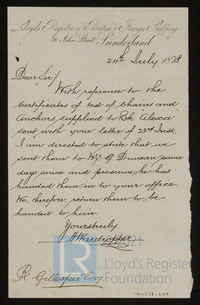 Lloyd's Register of British & Foreign Shipping
Sunderland
24th July 1878
Dear Sir/
With reference to the
Certificates of test of Chains and
Anchors supplied to
sent with your letter of 23rd Inst.
I am directed to state that we
sent them to Mr G Duncan some
days since and presume he has
handed them in to your office.
We therefore return them to be
handed to him
Yours truly
H Wardropper
R. Gillespie Esq
Lloyd's Register
Foundation